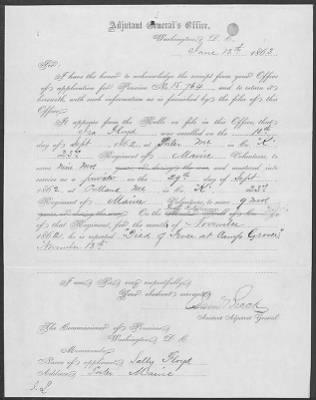 Adjutant General's Office,
Washington, D. C.
June 13th, 1863
Sir:
I have the honor to acknowledge the receipt from your Office
of application for Pension No. 15,764, and to return it
herewith, with such information as is furnished by the files of this
Office.
It appears from the Rolls on file in this Office, that
Ira Floyd was enrolled on the 10th
day of Sept, 1862, at Porter Me, in Co. "K",
23d Regiment of Maine Volunteers, to
serve Nine Mos years, or during the war, and mustered into
service as a private on the 29th day of Sept,
1862, at Portland Me, in Co. "K", 23d
Regiment of Maine Volunteers, to serve 9 mos
years, or during the war. On the Muster Roll of Co.
of that Regiment, for the months of November
1862, he is reported "Died of Fever at Camp Grover"
November 13th.
I am, Sir, very respectfully,
Your obedient servant,
Assistant Adjutant General.
The Commissioner of Pensions,
Washington, D. C.
Memoranda:
Name of applicant, Sally Floyd
Address, Porter Maine